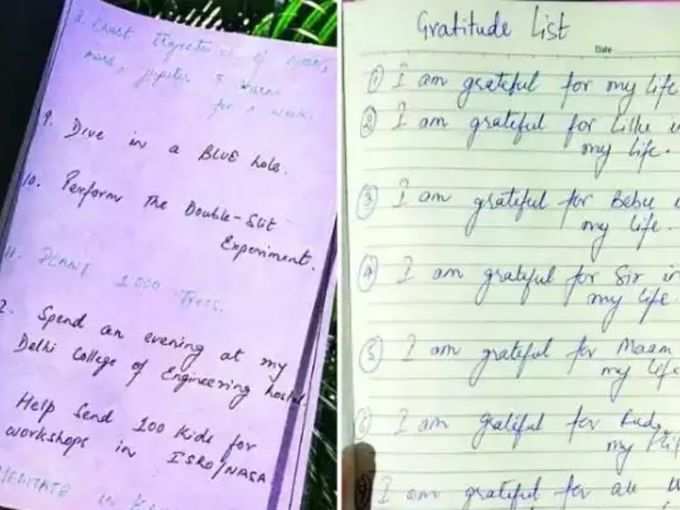 8. Chart Trajectories of Moon,
Mars, Jupiter & Saturn
for a week.
9. Dive in a BLUE hole.
10. Perform The Double-Slit
Experiment.
11. PLANT 1000 Trees.
2. Spend an evening at my
Delhi College of Engineering hostel.
Help Send 100 Kids for
workshops in ISRO/NASA
MEDITATE in
Gratitude List
Date
① I am grateful for my life
② I am grateful for
my life.
③ I am grateful for Bebu
my life.
④ I am grateful for Sir in
my life.
⑤ I am grateful for Maam
my life
⑥ I am grateful for
my life
I am grateful for all